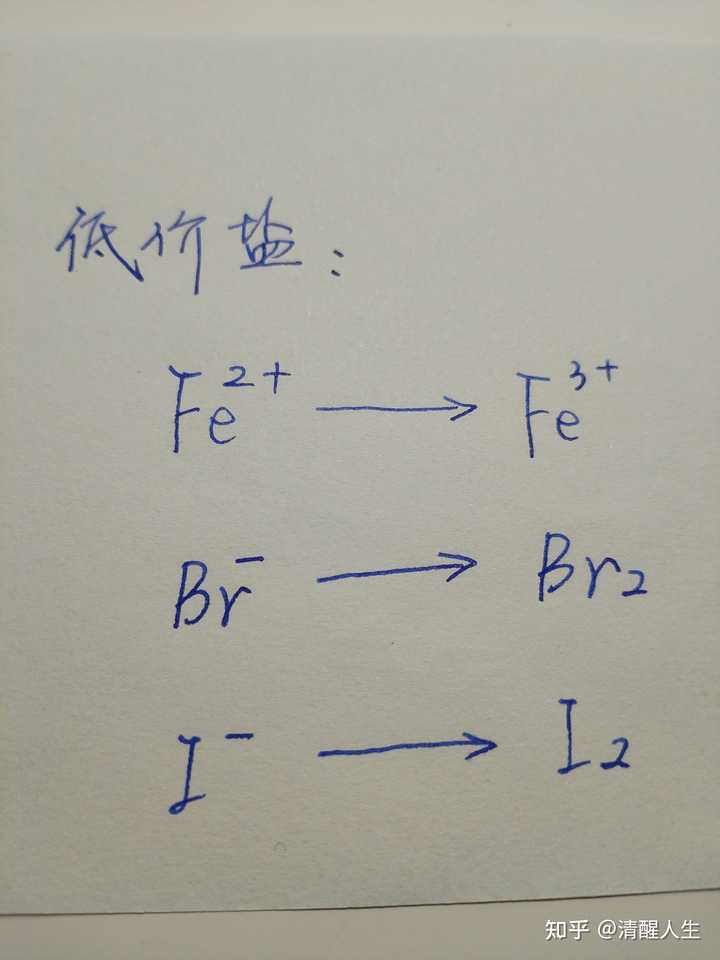 低价盐：
Fe²⁺ → Fe³⁺
Br⁻ → Br₂
I⁻ → I₂
知乎 @清醒人生